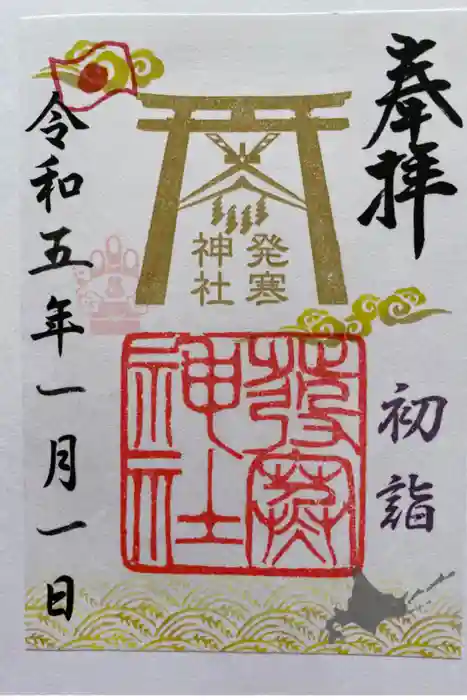 奉拝
初詣
発寒
神社
發寒
神社
令和五年一月一日